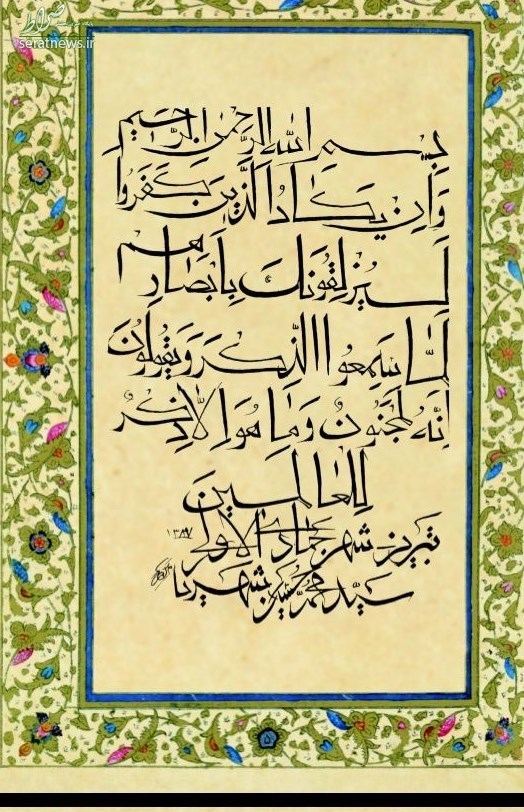 صراط
seratnews.ir
بِسمِ اللهِ الرَّحمنِ الرَّحیمِ
وَاِن یَکادُ الَّذینَ کَفَروا
لَیُزلِقونَکَ بِاَبصارِهِم
لَمّا سَمِعوا الذِّکرَ وَیَقولونَ
اِنَّهُ لَمَجنونٌ وَما هُوَ اِلّا ذِکرٌ
لِلعالَمین
تبریز شهر جمادی الاولی ۱۳۸۷
سید محمد حسین شهریار